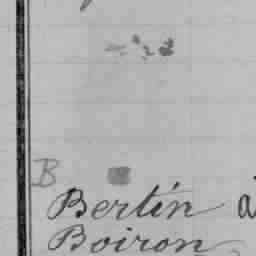 B
Bertin à
Boiron